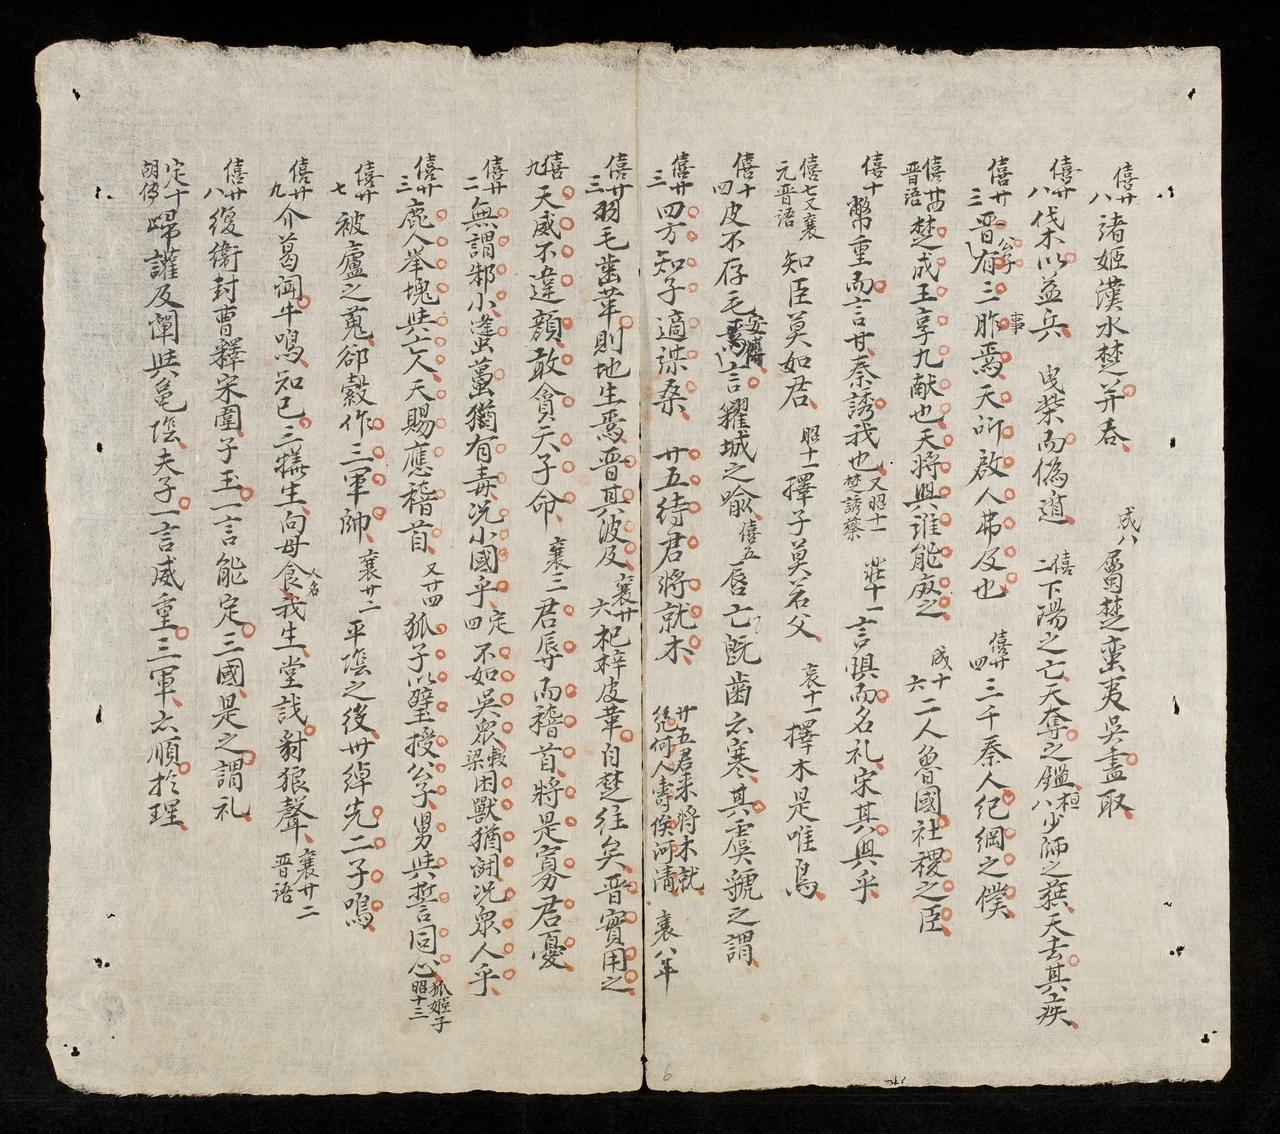 僖廿八 諸姬漢水楚并吞 成八 屬楚蠻夷吳盡取
僖廿八 伐木以益兵 曳柴而偽遁 僖二 下陽之亡天奪之鑑 桓八 少師之獲天去其疾
僖廿三 晉公子有三事胙焉天所啟人弗及也 僖廿四 三千秦人紀綱之僕
僖廿四 晉語 楚成王享九献也天將興誰能廢之 成十六 二人魯國社稷之臣
僖十 幣重而言甘秦誘我也 又昭十一 楚誘蔡 莊十一 言俱而名礼宋其興乎
僖七又襄元晋語 知臣莫如君 昭十一 擇子莫若父 哀十一 擇木是唯鳥
僖十四 皮不存毛安傅焉言糴城之喩 僖五 唇亡既齒亦寒其虞虢之謂
僖廿三 四方知子適謀桑 廿五待君將就木 廿五君来將木就 幾何人壽俟河清 襄八年
僖廿三 羽毛齒革則地生焉晋其波及 襄廿六 杞梓皮革自楚往矣晋實用之
僖九 天威不違顏敢貪天子命 襄三 君辱而稽首將是寡君憂
僖廿二 無謂邾小蜂虫蠆猶有毒況小國乎 定四 不如吳眾穀梁困獸猶鬪況眾人乎
僖廿三 鹿人举塊與亡人天賜應稽首 又廿四 狐子以璧授公子男與誓同心 狐姬子 昭十三
僖廿七 被廬之蒐郤縠作三軍帥 襄廿二 平陰之後州綽先二子鳴
僖廿九 介葛闻牛鳴知已三犧生向母食人名我生堂戝豺狼聲 襄廿二 晋語
僖廿八 復衛封曹釋宋圍子玉一言能定三國是之謂礼
定十 胡傳 歸讙及闡與龜陰夫子一言威重三軍亦順於理